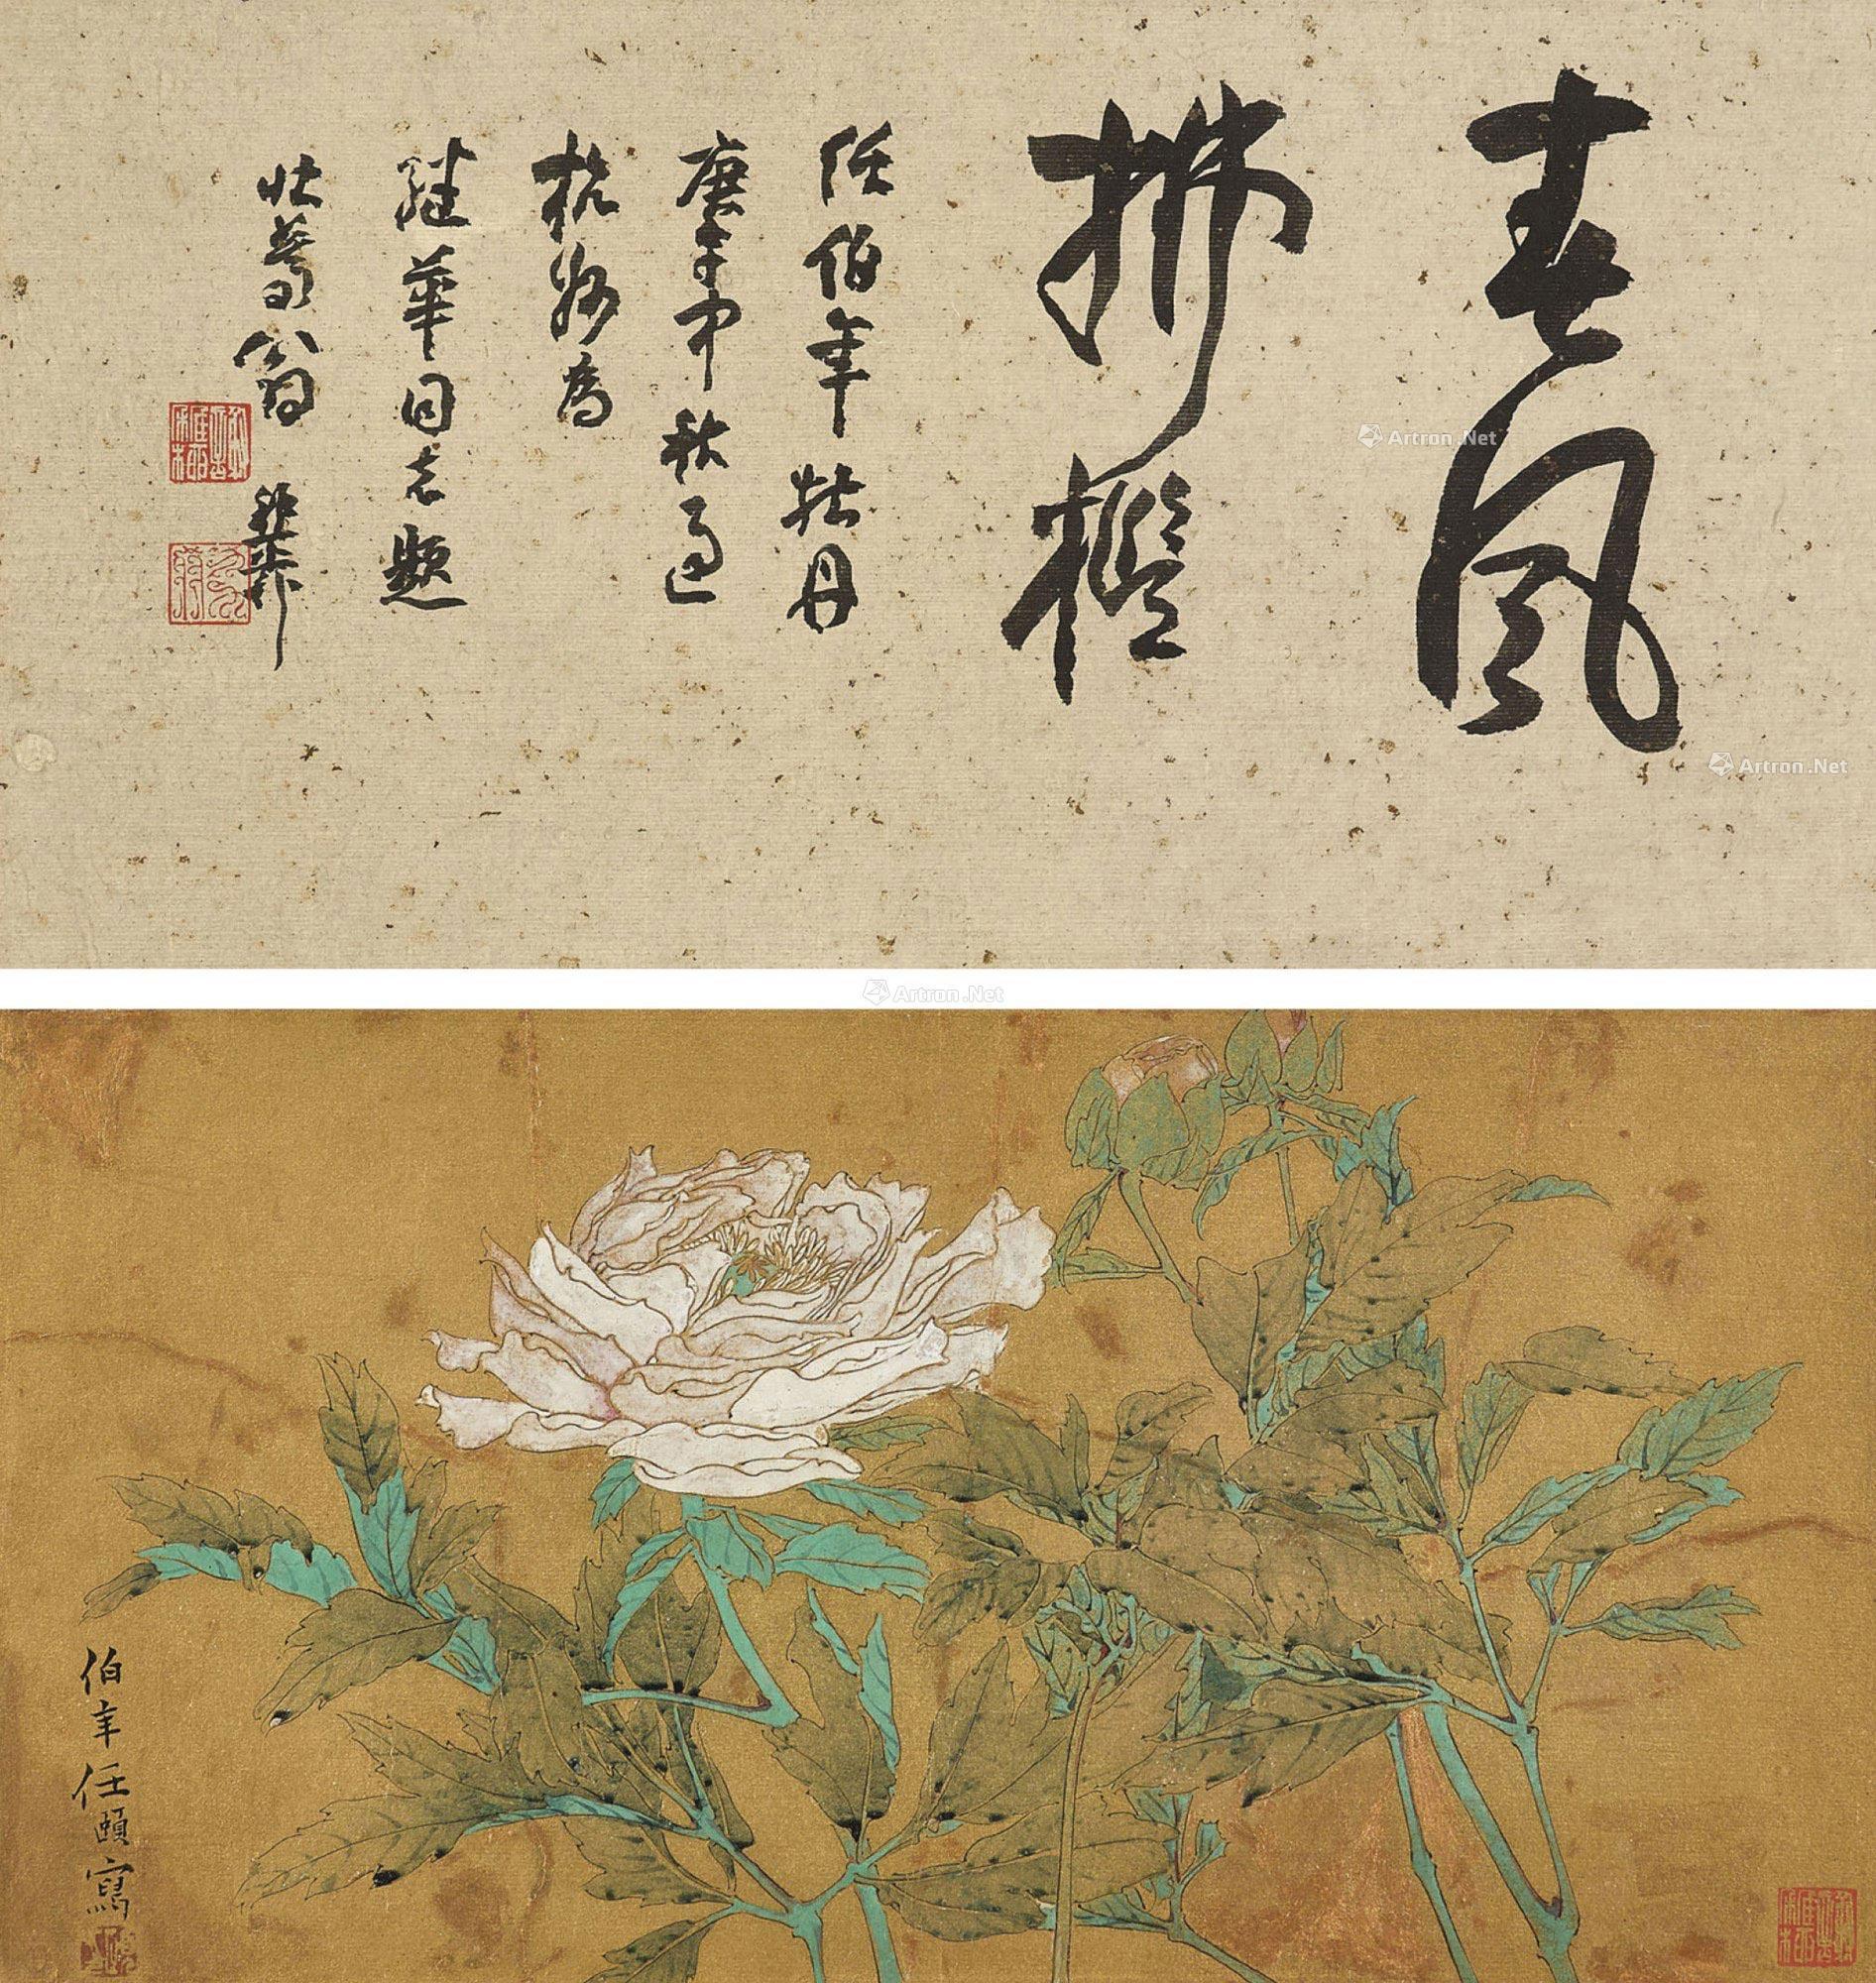 春風
拂檻
任伯年牡丹
庚午中秋過
杭州為
繼華同志題
壯暮翁稚柳
Artron.Net
Artron.Net
Artron.Net
伯年任頤寫